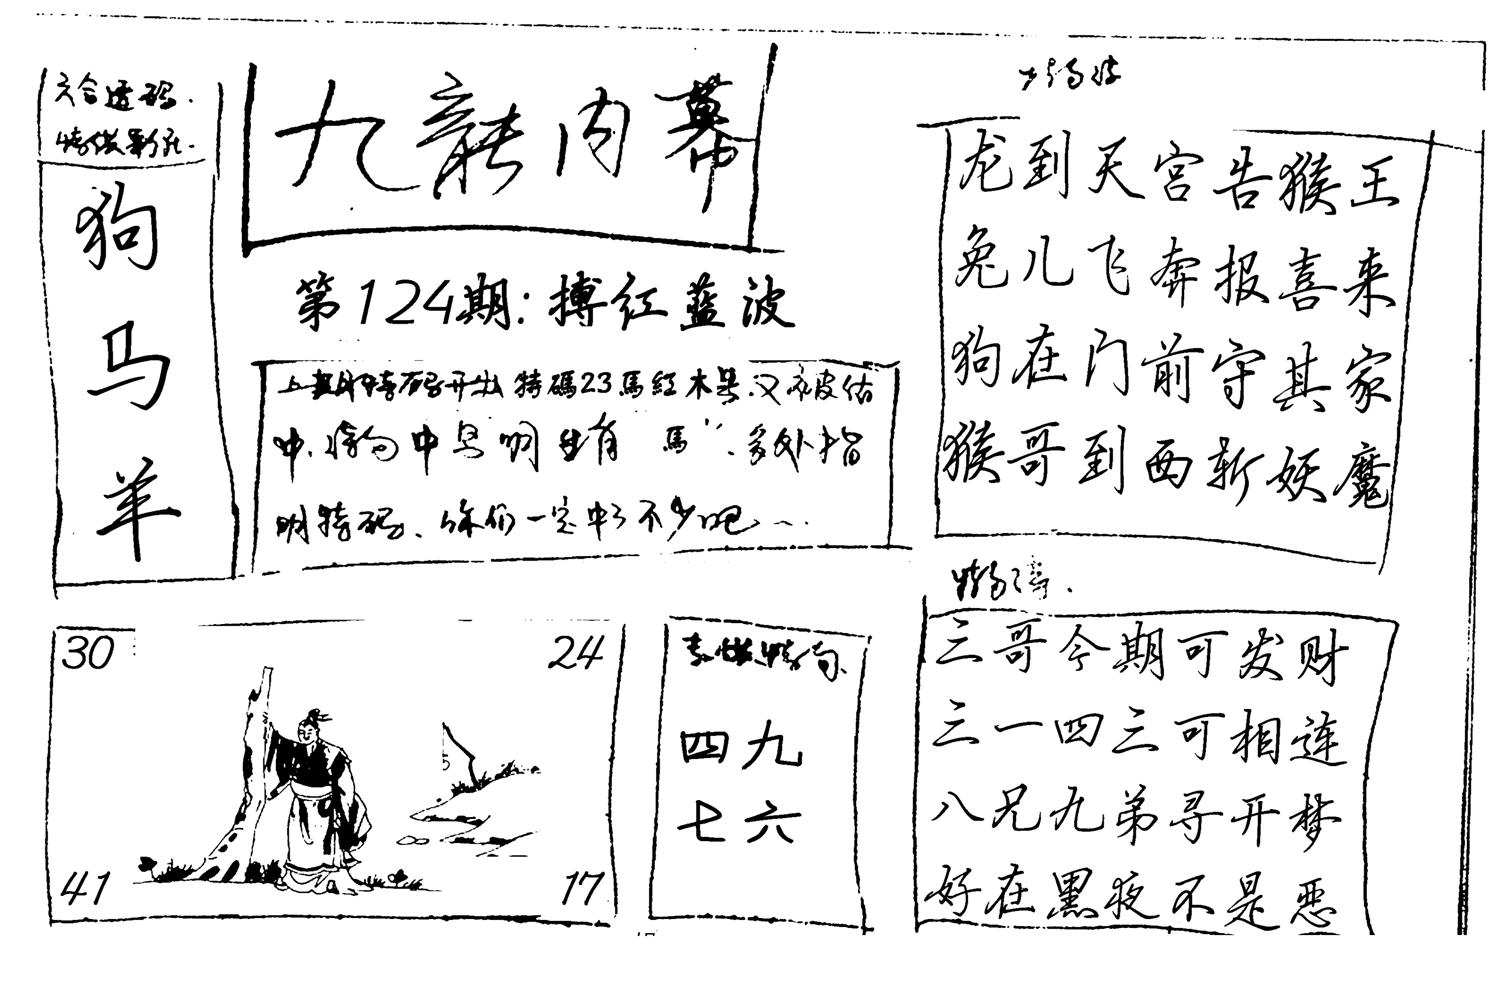 六合透码.
狗
马
羊
九龍内幕
第124期:搏红蓝波
上期特码开出特碼23馬紅木号.又被估
中.特句中号明生肖"馬".多外指
明特码、你们一定中了不少吧
龙到天宫告猴王
兔儿飞奔报喜来
狗在门前守其家
猴哥到西斩妖魔
三哥今期可发财
三一四三可相连
八兄九弟寻开梦
好在黑夜不是恶
30
24
41
17
四九
七六